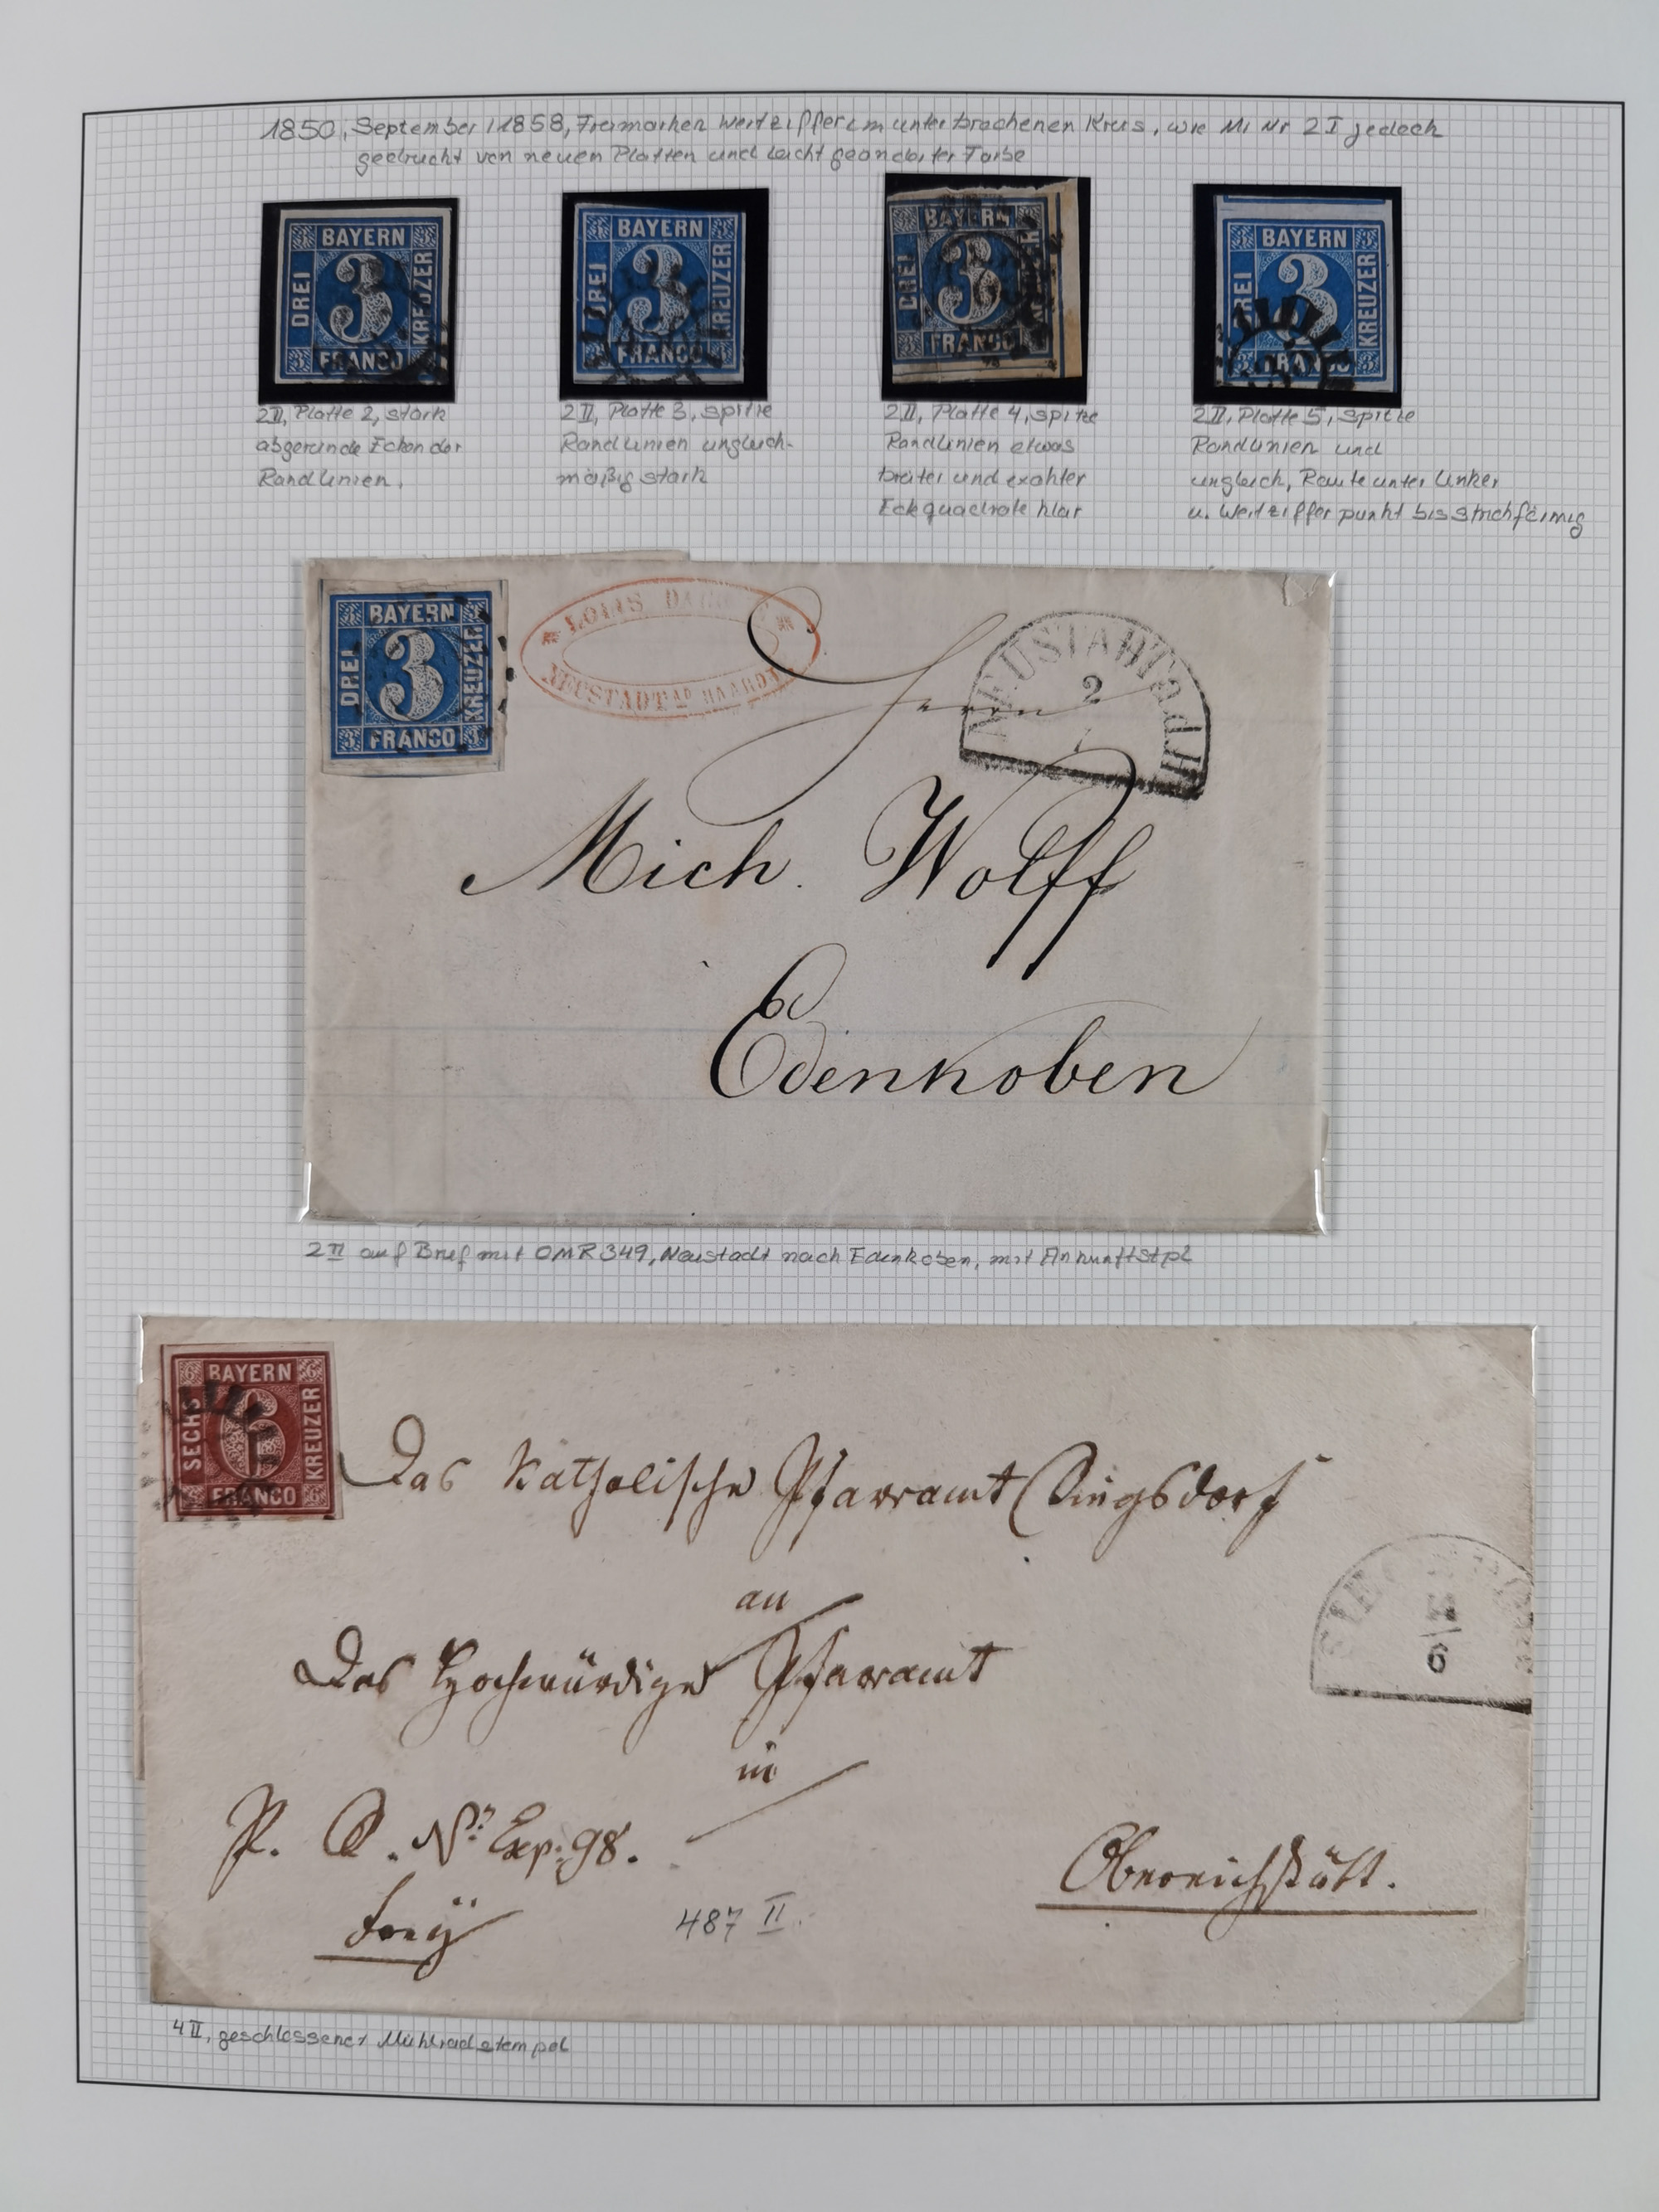 1850, September / 1858, Freimarken Wertziffer im unterbrochenen Kreis, wie Mi Nr 2 I jedoch
gedruckt von neuen Platten und leicht geänderter Farbe
BAYERN
DREI
3
KREUZER
FRANCO
BAYERN
DREI
3
KREUZER
FRANCO
BAYERN
DREI
3
FRANCO
BAYERN
DREI
3
KREUZER
FRANCO
2 II, Platte 2, stark
abgerunde Ecken der
Randlinien.
2 II, Platte 3, spitze
Randlinien ungleich-
mäßig stark
2 II, Platte 4, spitze
Randlinien etwas
breiter und exakter
Eckquadrate klar
2 II, Platte 5, spitze
Randlinien und
ungleich, Raute unter linker
u. Wertziffer punkt bis strichförmig
BAYERN
DREI
3
KREUZER
FRANCO
LOUIS
NEUSTADT A/D HAARDT
NEUSTADT a.d.H
2
Herrn
Mich. Wolff
Edenkoben
2 II auf Brief mit OMR 349, Neustadt nach Edenkoben, mit Ankunftstpl
BAYERN
SECHS
6
KREUZER
FRANCO
Das Katholische Pfarramt
an
Das Hochwürdige Pfarramt
in
6
P. S. No. Exp. 98.
Obereichstätt.
487 II
4 II, geschlossener Mühlradstempel